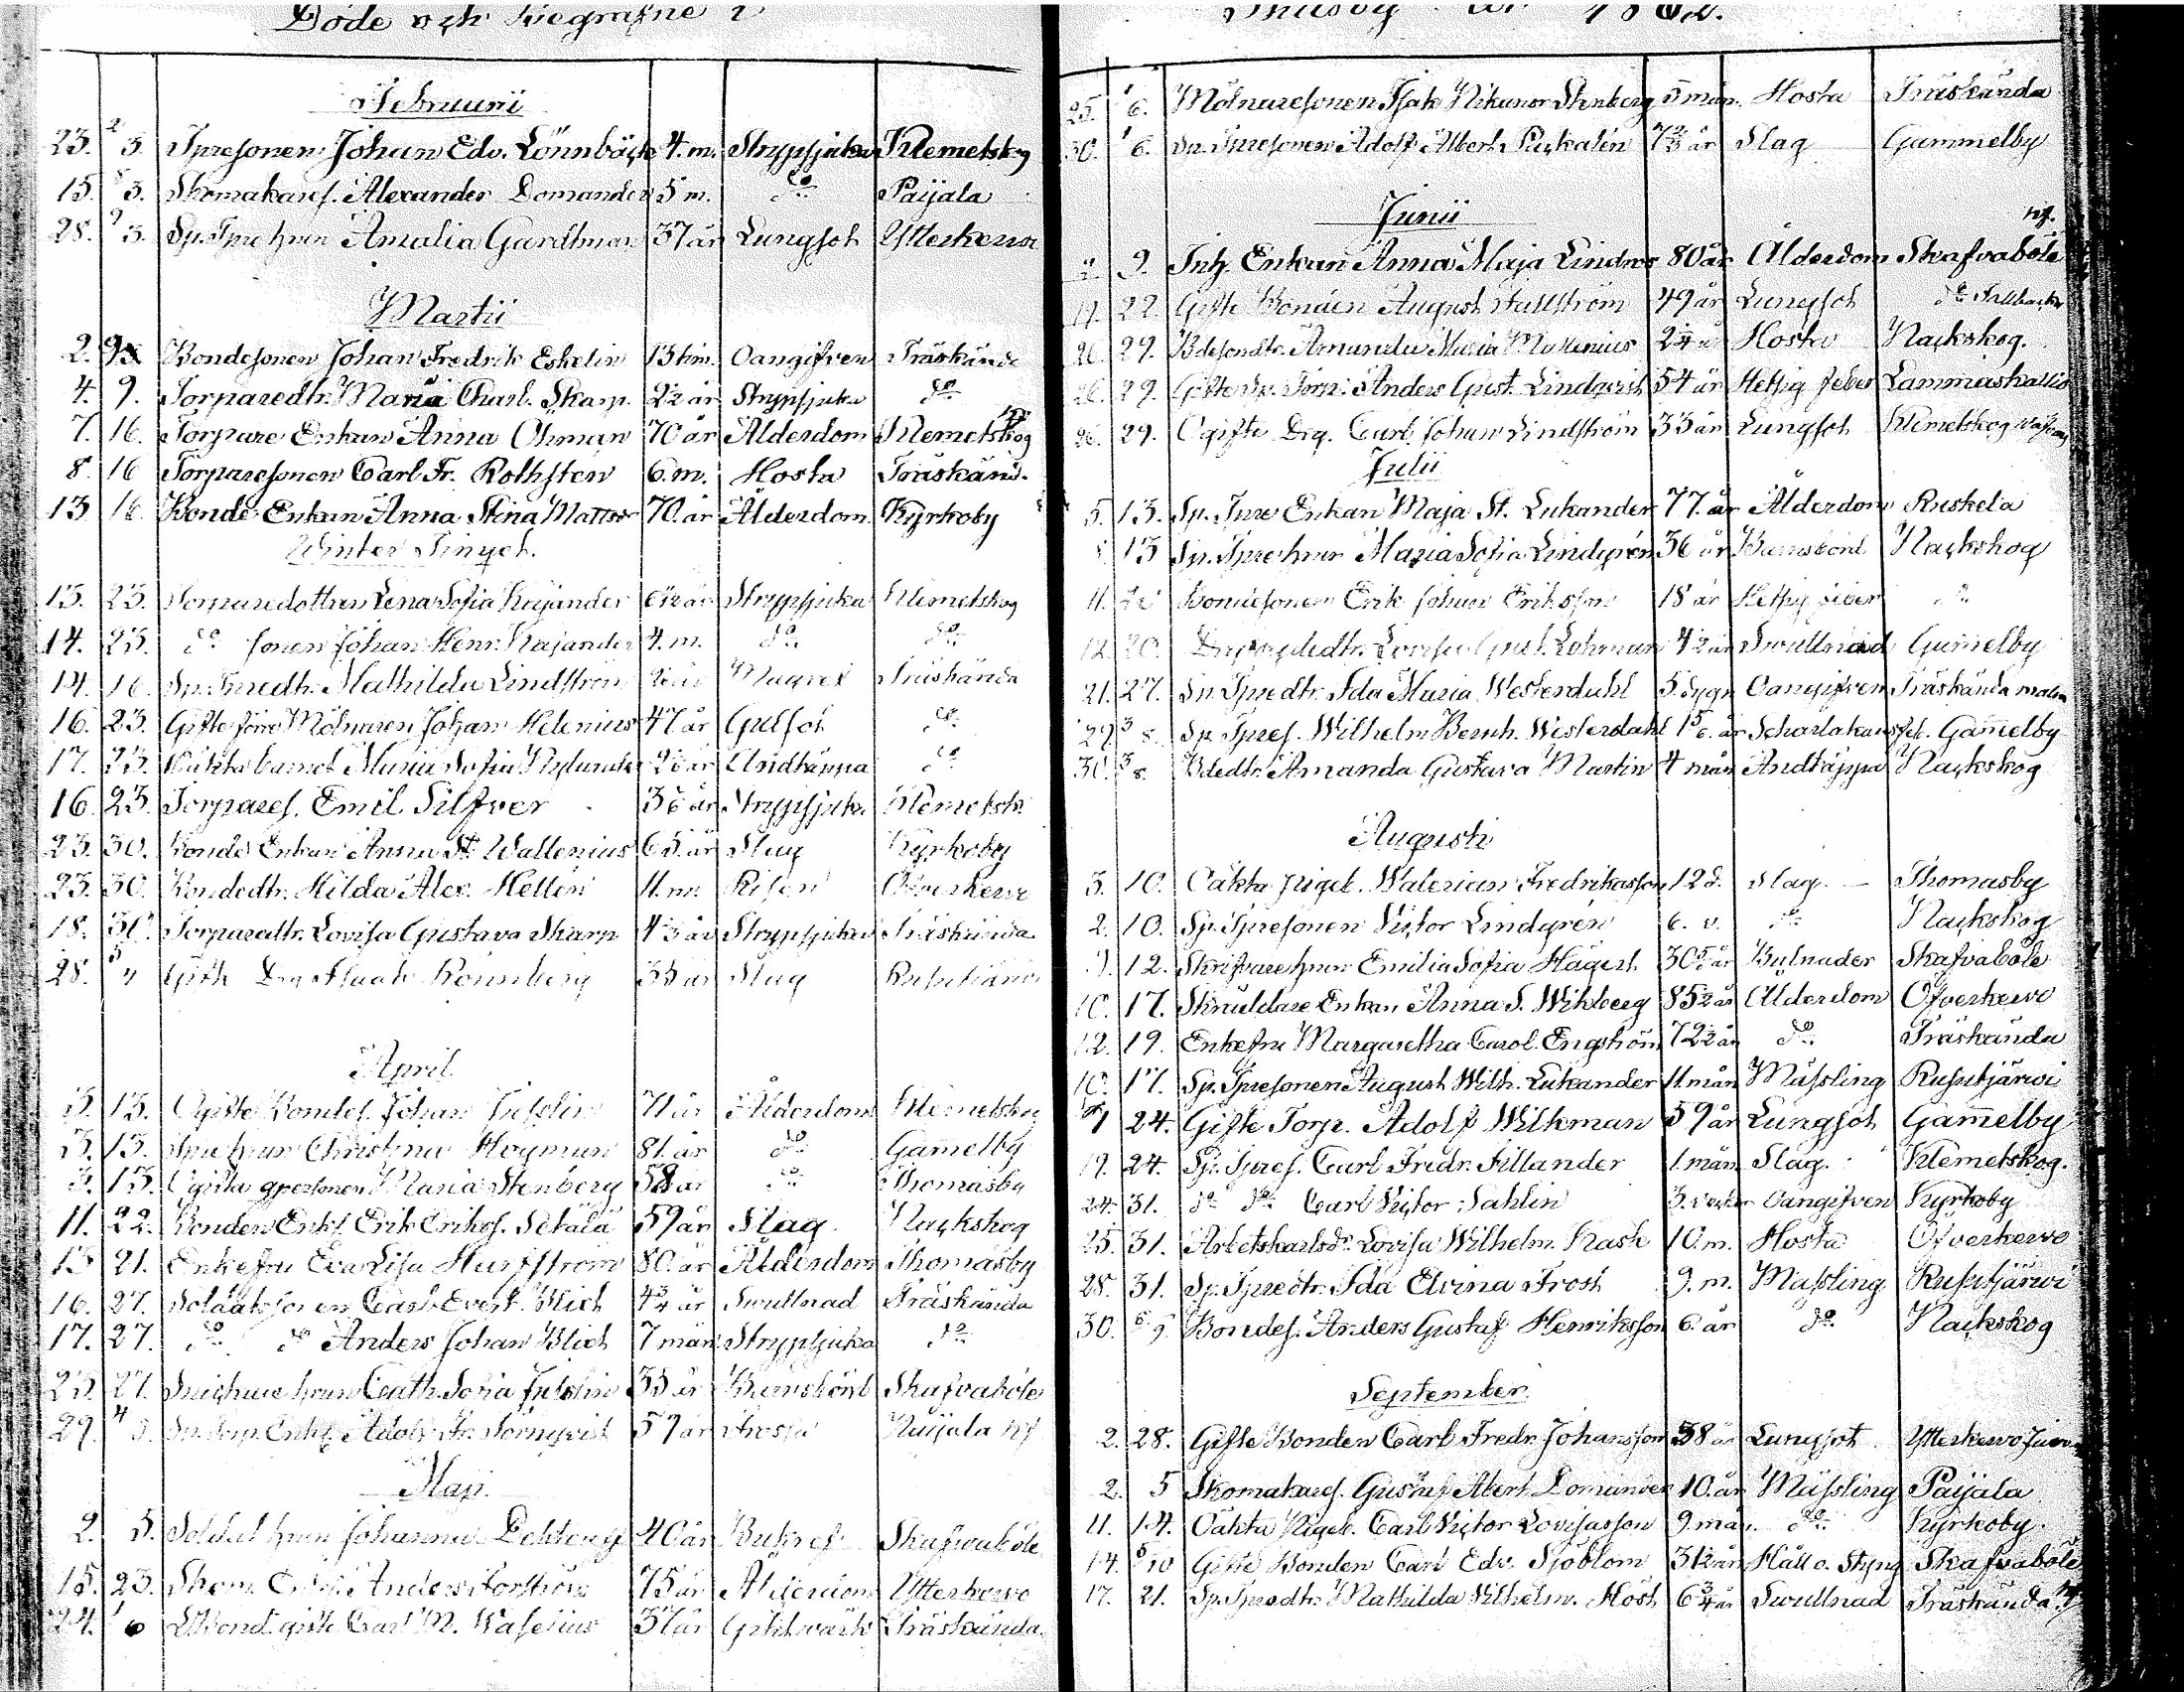 Döde och Begrafne i
Februari
23. 2/3. Tpresonen Johan Edv. Lönnbäck 4. m. Strypsjuka Klemetskog
15. 3. Skomakares. Alexander Domander 5 m. do Paijala
28. 9/3. Sp. Tpre hrun Amalia Gardtman 37 år Lungsot Ytterkervo
Martii
2. 9 Bondesonen Johan Fredrik Eskelin 13 tim. Oangifven Träskända
4. 9. Torparedtr. Maria Charl. Skarp 2½ år Strypsjuka do
7. 16. Torpare Enkan Anna Öhman 70 år Ålderdom Klemetskog
8. 16 Torparesonen Carl Fr. Rothsten 6. m. Hosta Träskänd.
13 16. Bonde Enkan Anna Stina Mattsr 70. år Ålderdom Kyrkoby
Winter Tinget.
13. 23. Torparedottren Lena Sofia Kajander år Strypsjuka Klemetskog
14. 23. do sonen Johan Henr. Kajander 4. m. do do
14. 16. Sp. Tpredtr. Mathilda Lindström Magref Träskända
16. 23. Gifte förre Mölnaren Johan Helenius 47 år Gulsot do
17. 23. Oäkta barnet Maria Sofia Nylander år Andtäppa do
16. 23. Torpares. Emil Silfver år Strypsjuka Klemetsk.
23. 30. Bonde Enkan Anna St. Wallenius 65. år Slag Kyrkoby
23. 30. Bondedtr. Hilda Alex. Hellén 11. m. Risen Öfverkervo
18. 30. Torparedtr. Lovisa Gustava Skarp år Strypsjuka Träskända
28. Gifte Drg Isaak Rönnberg 33 år Slag Rusutjärvi
April
3. 13. Ogifte Bondes. Johan 71 år Ålderdom Klemetskog
3. 13. hrun Christina Hoyman 81. år do Gamelby
3. 13. Ogifta Maria Stenberg 58 år do Thomasby
11. 22. Bonden Enkl. Erik Erikss. Setälä 59 år Slag Nackskog
13 21. Enkefru Eva Lisa 80. år Ålderdom Thomasby
16. 27. Soldatsonen Carl Evert Blich 4¾ år Swullnad Träskända
17. 27. do do Anders Johan Blich 7 mån. Strypsjuka do
23. 27. hrun Cath. Sofia 33 år Barnsbörd Skafvaböle
29. 4/5. Sp. Torp. Enkl. Adolf Fr. Törnqvist 59 år Frossa
Maji
2. 5. Soldat hrun Johanna 40 år Bukref Skafvaböle
15. 23. Skom. Enkl. Anders Forsström 75 år Ålderdom Ytterkervo
24. 1/6 gifte Carl M. Wasenius 37 år Giktvärk Träskända.
Thusby år 1862.
25. 1/6. Mölnaresonen Isak Nikanor Stenberg 5 mån. Hosta Träskända
30. 1/6. Sp. Tpresonen Adolf Albert Puckalén 7⅔ år Slag Gammelby
Junii
9. Inh. Enkan Anna Maja Lindros 80 år Ålderdom Skafvaböle
17. 22. Gifte Bonden August Hallström 49 år Lungsot do
26. 29. Bdesondtr. Amanda Maria 2¾ år Hosta Nackskog.
26. 29. Gifte Sp. Torp. Anders Gust. Lindqvist 54 år Hetsig feber Lammaskallio
26. 29. Ogifte Drg. Carl Johan Lindström 33 år Lungsot Klemetskog
Julii
5. 13. Sp. Tpre Enkan Maja St. Lukander 77. år Ålderdom Ruskela
13 Sp. Tpre hrun Maria Sofia Lindgrén 36 år Barnsbörd Nackskog
11. 20 Bondesonen Erik Johan Eriksson 18 år Hetsig feber do
12. 20. Lovisa Gust. Lohman 4½ år Swullnad Gamelby
21. 27. Sp. Tpredtr. Ida Maria Westerdahl 5. dygn Oangifven Träskända malm
29 3/8. Sp. Tpres. Wilhelm Bernh. Westerdahl 1 5/6. år Scharlakansfeb. Gamelby
30. 3/8. Bdedtr. Amanda Gustava Martin 4 mån Andtäppa Nackskog
Augusti
3. 10. Oäkta pigeb. Walerian Fredrikasson 12 d. Slag. Thomasby
2. 10. Sp. Tpresonen Victor Lindgrén 6. v. do Nackskog
9. 12. Skrifvarehrun Emilia Sofia Hägert 30 5/6 år Bulnader Skafvaböle
10. 17. Skräddare Enkan Anna S. Wikberg 85½ år Ålderdom Öfverkervo
12. 19. Enkefru Margaretha Carol. Engström 72½ år do Träskända
10. 17. Sp. Tpresonen August Wilh. Lukander 11. mån Mässling Rusutjärwi
24. Gifte Torp. Adolf Wilkman 59 år Lungsot Gamelby
19. 24. Sp. Tpres. Carl Fredr. Fillander 1. mån Slag. Klemetskog.
24. 31. do do Carl Victor Sahlin 3. veckor Oangifven Kyrkoby
25. 31. Arbetskarlsdr. Lovisa Wilhelm. Rask 10. m. Hosta Öfverkervo
28. 31. Sp. Tpredtr. Ida Elvina Frost 9. m. Mässling Rusutjärwi
30. 6/9 Bondes. Anders Gustaf Henriksson 6. år do Nackskog
September.
2. 28. Gifte Bonden Carl Fredr. Johansson 38 år Lungsot Ytterkervo
2. 5 Skomakares. Gustaf Albert Domander 10. år Mässling Paijala
11. 14. Oäkta Pigeb. Carl Victor Lovisasson 9. mån. do Kyrkoby.
14. 5/10 Gifte Bonden Carl Edv. Sjöblom 31½ år Håll o. Styng Skafvaböle
17. 21. Sp. Tpredtr. Mathilda Wilhelm. Höst 6¾ år Swullnad Träskända